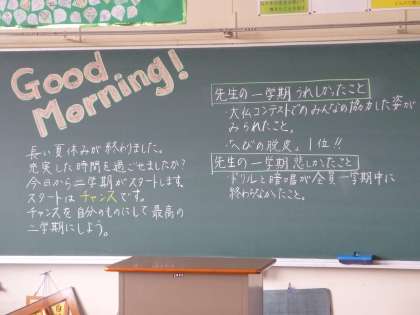 Good
Morning!
長い夏休みが終わりました。
充実した時間を過ごせましたか?
今日から二学期がスタートします。
スタートはチャンスです。
チャンスを自分のものにして最高の
二学期にしよう。
先生の一学期うれしかったこと
大仏コンテストでのみんなの協力した姿が
みられたこと。
「へびの脱皮」1位!!
先生の一学期悲しかったこと
ドリルと暗唱が全員一学期中に
終わらなかったこと。